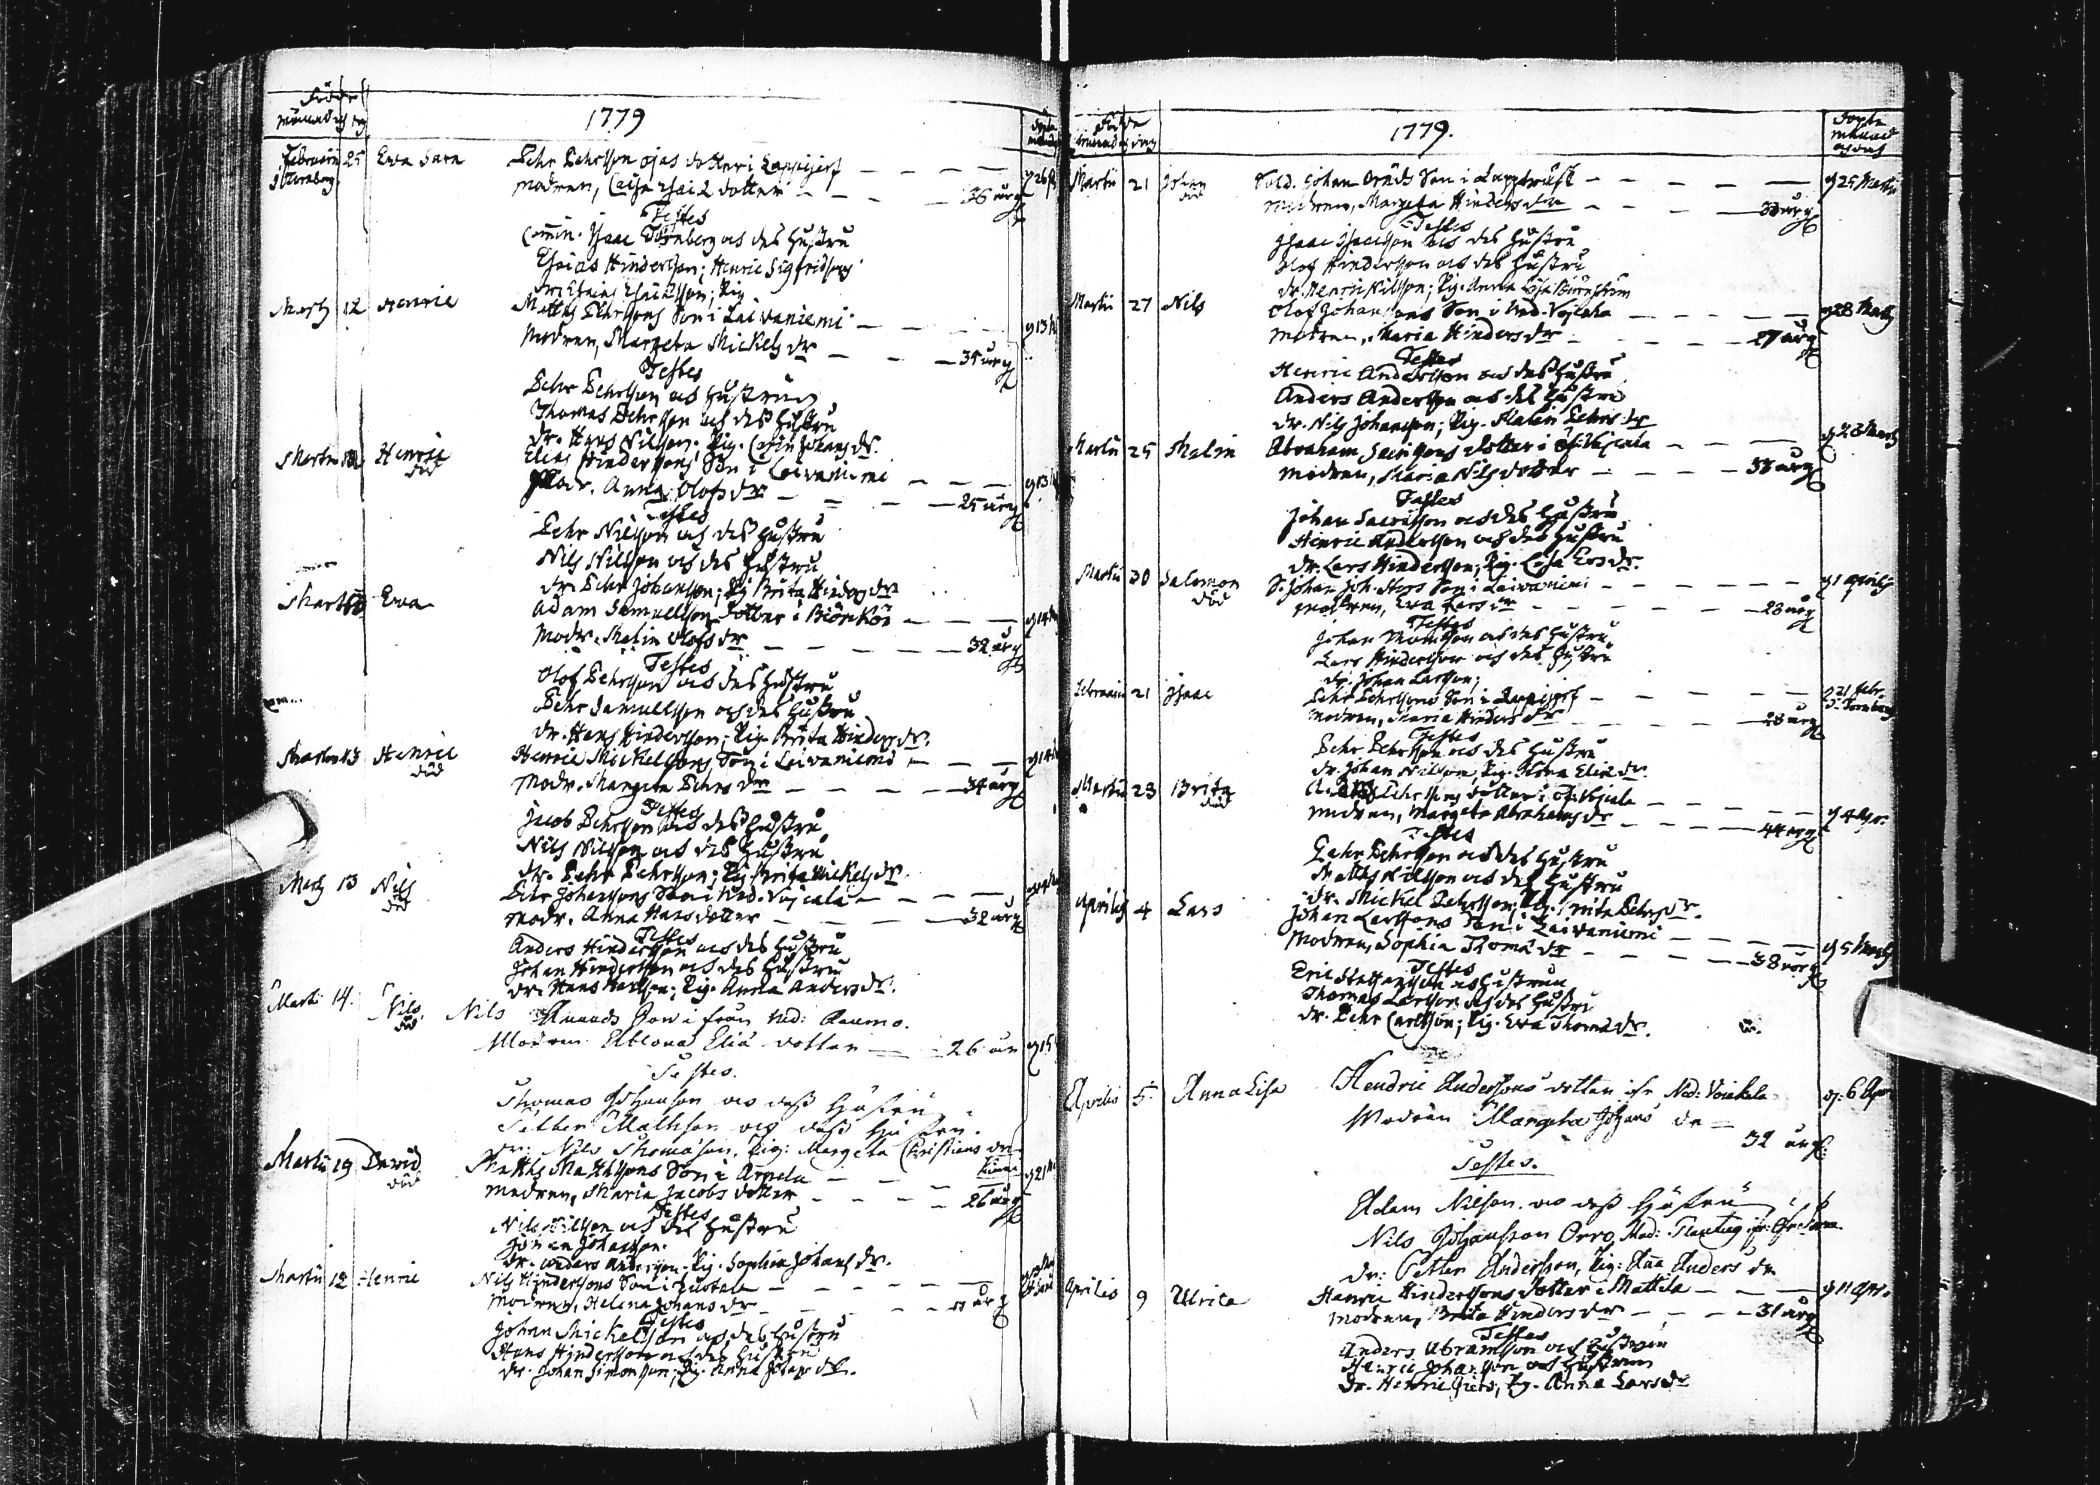 Födde
månad dag
1779
Döpte
Februarii 25 Ewa Sara Pehr Pehrsson ojas dotter i Lappijerf
g 26
Modren, Caisa Esai dotter 36 årg
Testes
Comin. Isaac Tornberg och des hustru
Esaias Hindersson; Henric Sigfridsons
dr. Esaias Esaiæsson; Pig.
Martij 12 Henric Matths Pehrssons Son i Laivaniemi
g 13
Modren, Margeta Mickels dr 35 årg
Testes
Pehr Pehrsson och hustrun
Thomas Pehrsson och des hustru
dr. Hans Nilsson. Pig. Carin Johans dr.
Martii Henric död Elias Hinderssons Son i Laivaniemi
g 13
Modr. Anna Olofs dr 25 årg
Testes
Pehr Nilsson och des hustru
Nils Nilsson och des hustru
dr. Pehr Johansson; Pig Brita Hinders dr
Martii Ewa Adam Samuelsson dotter i Biörckön
g 14
Modr. Malin Olofs dr 32 årg
Testes
Olof Pehrsson och des hustru
Pehr Samuelsson och des hustru
dr. Hans Hindersson; Pig. Brita Hinders dr.
Martii 13 Henric död Henric Mickelssons Son i Laivaniemi
g 14
Modr. Margeta Pehrs dr 34 årg
Testes
Jacob Pehrsson och des hustru
Nils Nilsson och des hustru
dr. Pehr Pehrsson; Pig. Brita Mickels dr
Martij 13 Nils död Pehr Johanssons Son i Ned. Vojcala
Modr. Anna Hans dotter 32 årg
Testes
Anders Hindersson och des hustru
Johan Hindersson och des hustru
dr. Hans Hansson; Pig. Anna Anders dr.
Mart: 14. Nils. död Nils Knuuds Son i från Ned: Raumo.
Modren Ablona Eliæ dotter 26 år
g 15
Testes.
Thomas Johansson och dess hustru
Petter Mathsson och dess hustru.
dr: Nils Thomasson. Pig: Margeta Christians dr
Martii 19 David död Matths Matthssons Son i Arpela
g 21
Modren, Maria Jacobs dotter 26 årg
Testes
Nils Nilsson och des hustru
Johan Johansson.
dr. Anders Andersson. Pig. Sophia Johans dr.
Martii 12 Henric Nils Hinderssons Son i
Modren, Helena Johans dr årg
Testes
Johan Mickelsson och des hustru
Hans Hindersson och des hustru
dr. Johan Simonsson; Pig. Anna Johans dr.
Födde
månad dag
1779.
Döpte
månad
och dag
Martii 21 Johan död Sold. Johan Brudds Son i Lappträsk
g 25 Martii
Modren, Margeta Hinders dr 30 årg
Testes
Isaac Isacsson och des hustru
Olof Hindersson och des hustru
dr. Henric Nilsson; Pig. Anna Lisa Biörnström
Martii 27 Nils Olof Johanssons Son i Ned. Vojcala
g 28 Martij
Modren, Maria Hinders dr 27 årg
Testes
Henric Andersson och des hustru
Anders Andersson och des hustru
dr. Nils Johansson; Pig. Malin Pehrs dr
Martii 25 Malin Abraham dotter i Öf. Vojcala
g 28 Martij
Modren, Maria Nils dotter 38 årg
Testes
Johan och des hustru
Henric Andersson och des hustru
dr. Lars Hindersson; Pig. Caisa Ers dr.
Martii 30 Salomon död S. Johan Joh. Son i Laivaniemi
g 1 Aprilis
Modren, Ewa Lars dr 28 årg
Testes
Johan Thomsson och des hustru
Lars Hindersson och des hustru
dr. Johan Larsson;
Februarii 21 Isaac Pehr Pehrssons Son i Lappijerf
g 21 Febr.
Tornberg
Modren, Maria Hinders dr 28 årg
Testes
Pehr Pehrsson och des hustru
dr. Johan Nilsson, Pig. Eliæ dr.
Martii 23 Brita död Pehrssons dotter i Öf. Vojcala
g 4 Apr.
Modren, Margeta Abrahams dr 44 årg
Testes
Pehr Pehrsson och des hustru
Matths Nilsson och des hustru
dr. Mickel Pehrsson; Pig. Brita Pehrs dr.
Aprilis 4 Lars Johan Larssons Son i Laivaniemi
g 5
Modren, Sophia Thomæ dr 38 årg
Testes
Eric Staffansson och hustrun
Thomas Larsson och des hustru
dr. Pehr Carlsson; Pig. Ewa Thomæ dr.
Aprilis 5 Anna Lisa Hendric Anderssons dotter ifr Ned: Voickala
g: 6 Apr
Modren Margeta Johans dr
32 årg.
Testes.
Adam Nilsson och dess hustru
Nils Johansson Orro, Mad:
dr: Petter Andersson, Pig: Ana Anders dr
Aprilis 9 Ulrica Henric Hinderssons dotter i Mattila
g 11 Apr.
Modren, Brita Hinders dr 31 årg
Testes
Anders Abramsson och hustrun
Henric Johansson och hustrun
dr. Henric Giers, Pig. Anna Lars dr